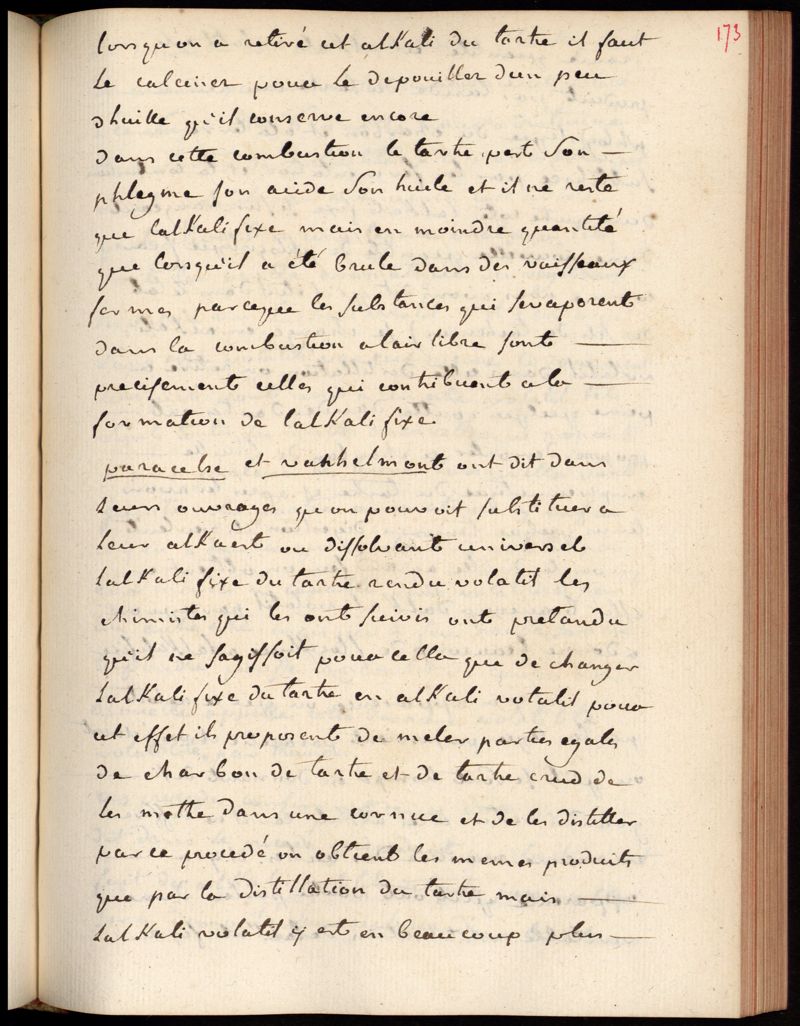 173
lorsquon a retiré cet alKali du tartre il faut
le calciner pour le depouiller dun peu
dhuille qu'il conserve encore
dans cette combustion le tartre pert son —
phlegme son acide son huile et il ne reste
que lalKali fixe mais en moindre quantité
que lorsqu'il a été brulé dans des vaisseaux
fermes parceque les substances qui sevaporent
dans la combustion alair libre sont —
precisement celles qui contribuent a la —
formation de lalKali fixe
paracelse et vanhelmont ont dit dans
leurs ouvrages qu on pouvoit substituer a
leur alKaest ou dissolvant universel
lalKali fixe du tartre rendu volatil les
chimistes qui les ont suivis ont pretandu
qu'il ne sagissoit pour cella que de changer
lalKali fixe du tartre en alKali volatil pour
cet effet ils proposent de meler parties egales
de charbon de tartre et de tartre crud de
les mettre dans une cornue et de les distiller
par ce procedé on obtient les memes produits
que par la distillation du tartre mais —
lalKali volatil y est en beaucoup plus —